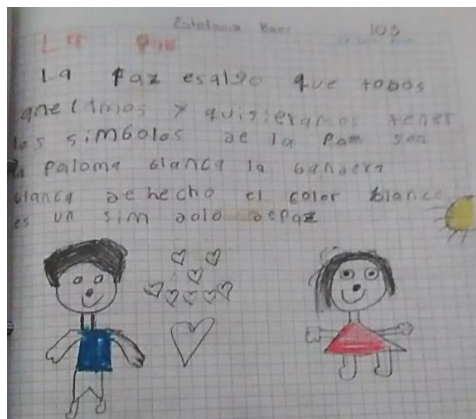 103
La Paz
La Paz es algo que todos
anelamos y quisieramos tener
los simbolos de la Paz son
la Paloma blanca la bandera
blanca de hecho el color blanco
es un sim bolo de paz